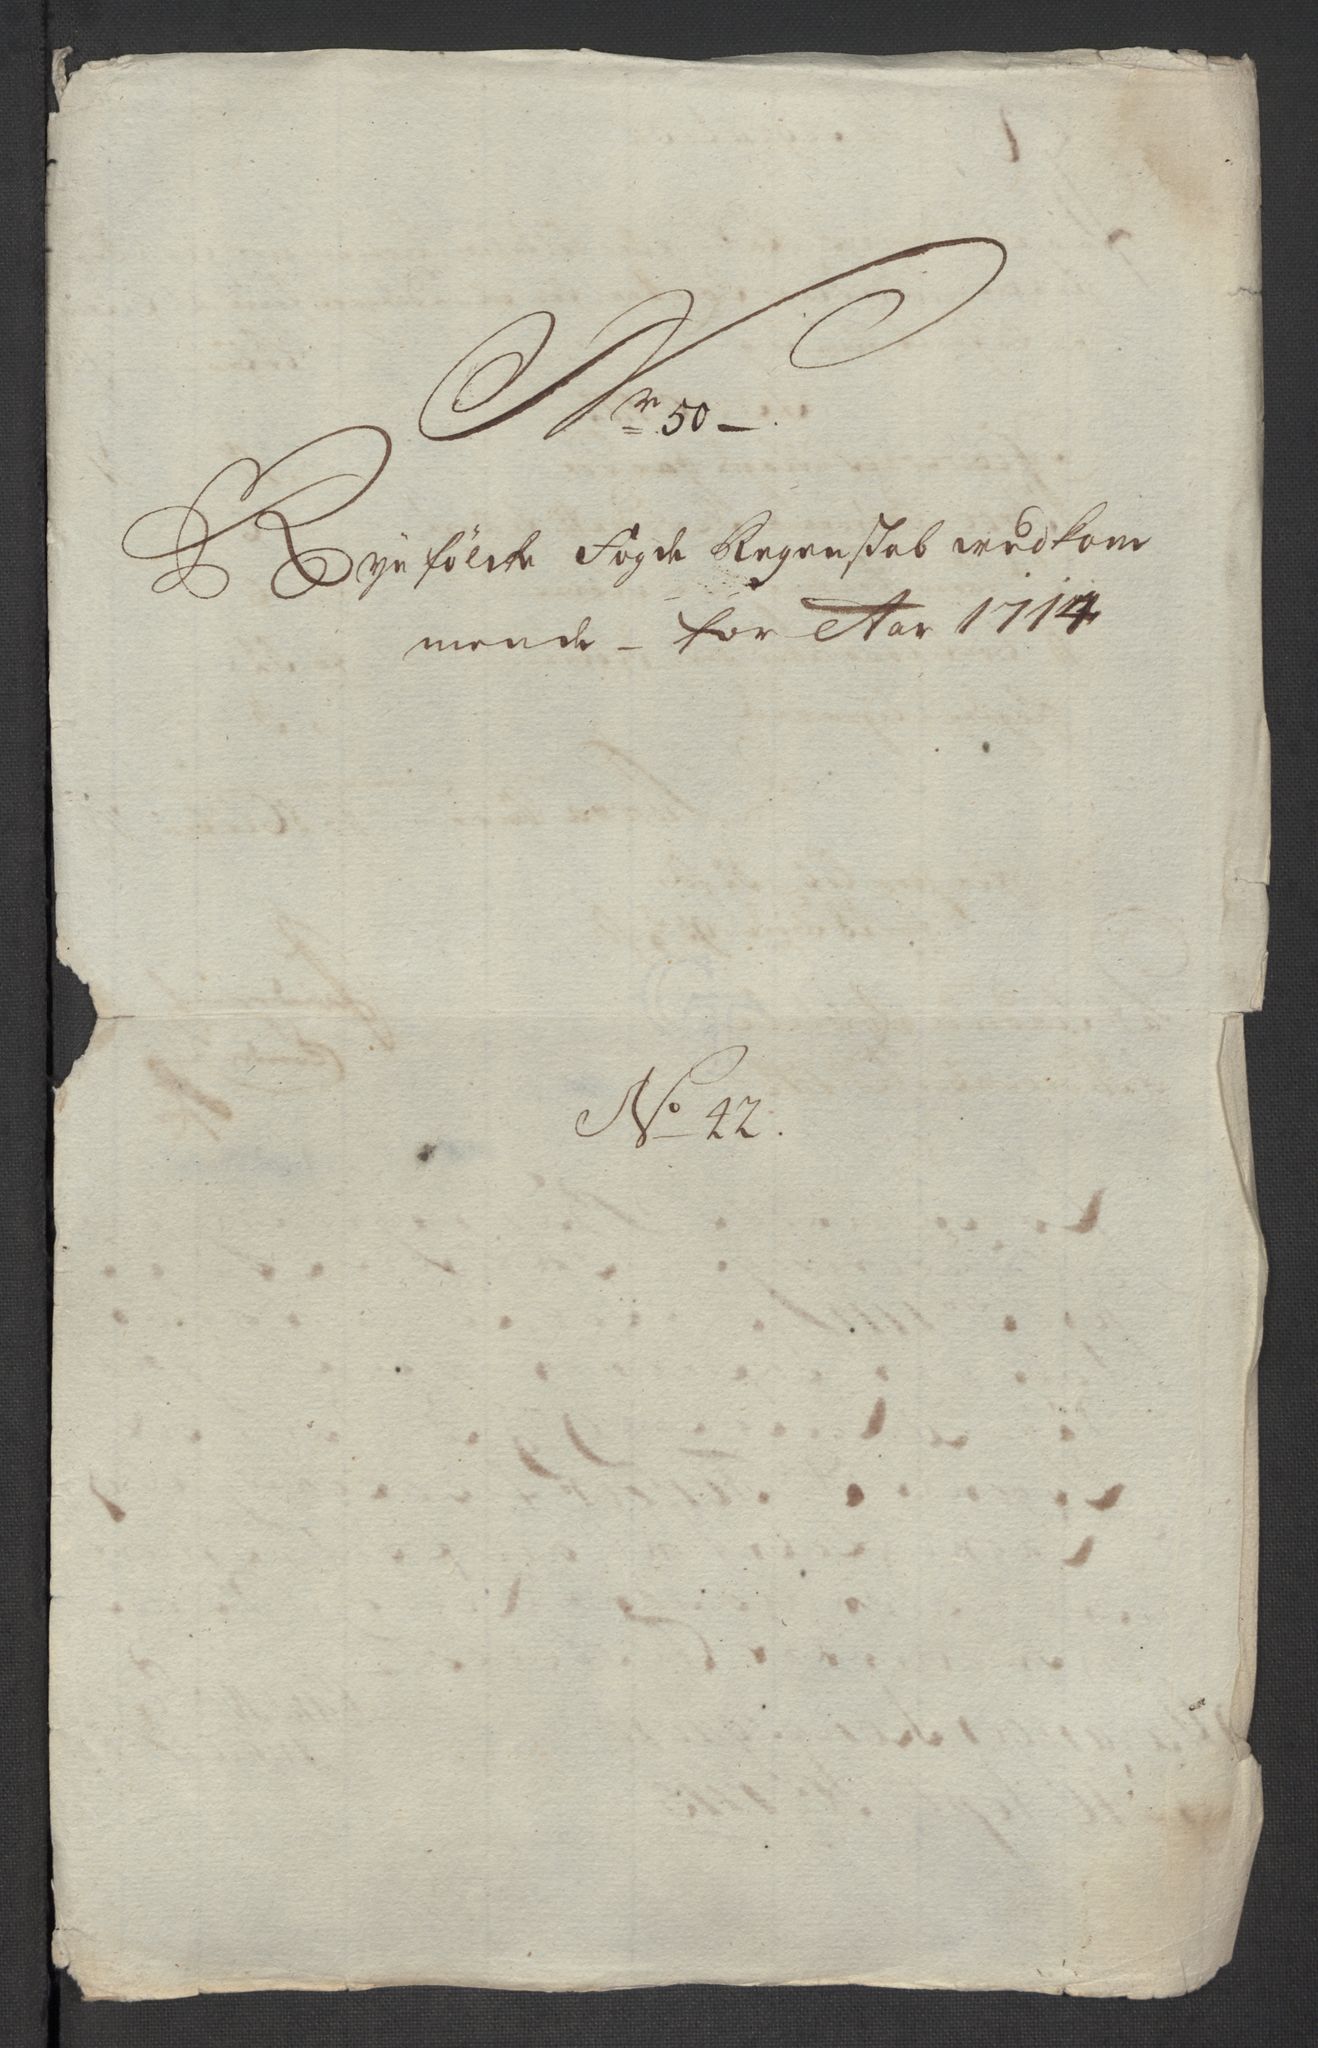 Nr 50 -
Ryefölcke Fogde Regenskab vedkom
mende - for Aar 1714
No 42.